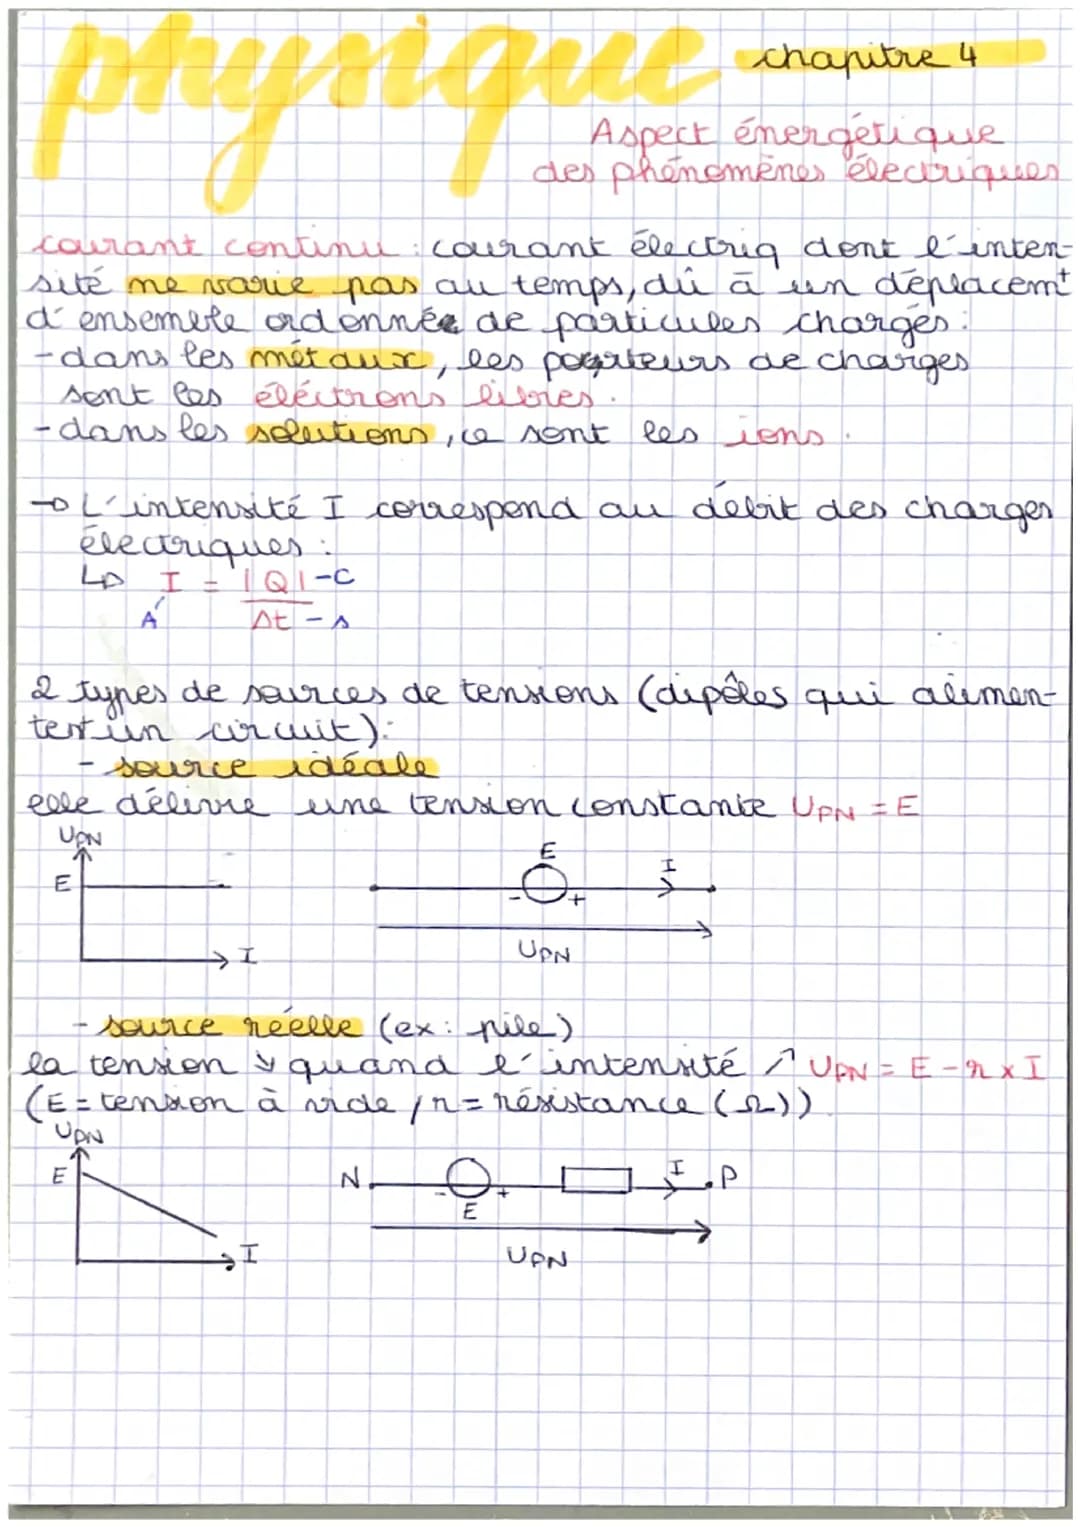 physique
chapitre 4
Aspect énergétique
des phénomènes électriques
courant continu : courant électriq dont l'inten-
sité ne varie pas au temps, dû à un déplacemt
d'ensemble ordonnée de particules chargés :
- dans les métaux, les porteurs de charges
sont les éléctrons libres.
- dans les solutions, ce sont les ions.
→ L'intensité I correspond au débit des charges
électriques :
↳ I = |Q| - C
A Δt - s
2 types de sources de tensions (dipôles qui alimen-
tent un circuit):
- source idéale
elle délivre une tension constante UPN = E
UPN
E
I
E
I
- +
UPN
- source réelle (ex: pile)
la tension ↘ quand l'intensité ↗ UPN = E - r x I
(E = tension à vide / r = résistance (Ω))
UPN
E
I
N
- +
E
I
P
UPN